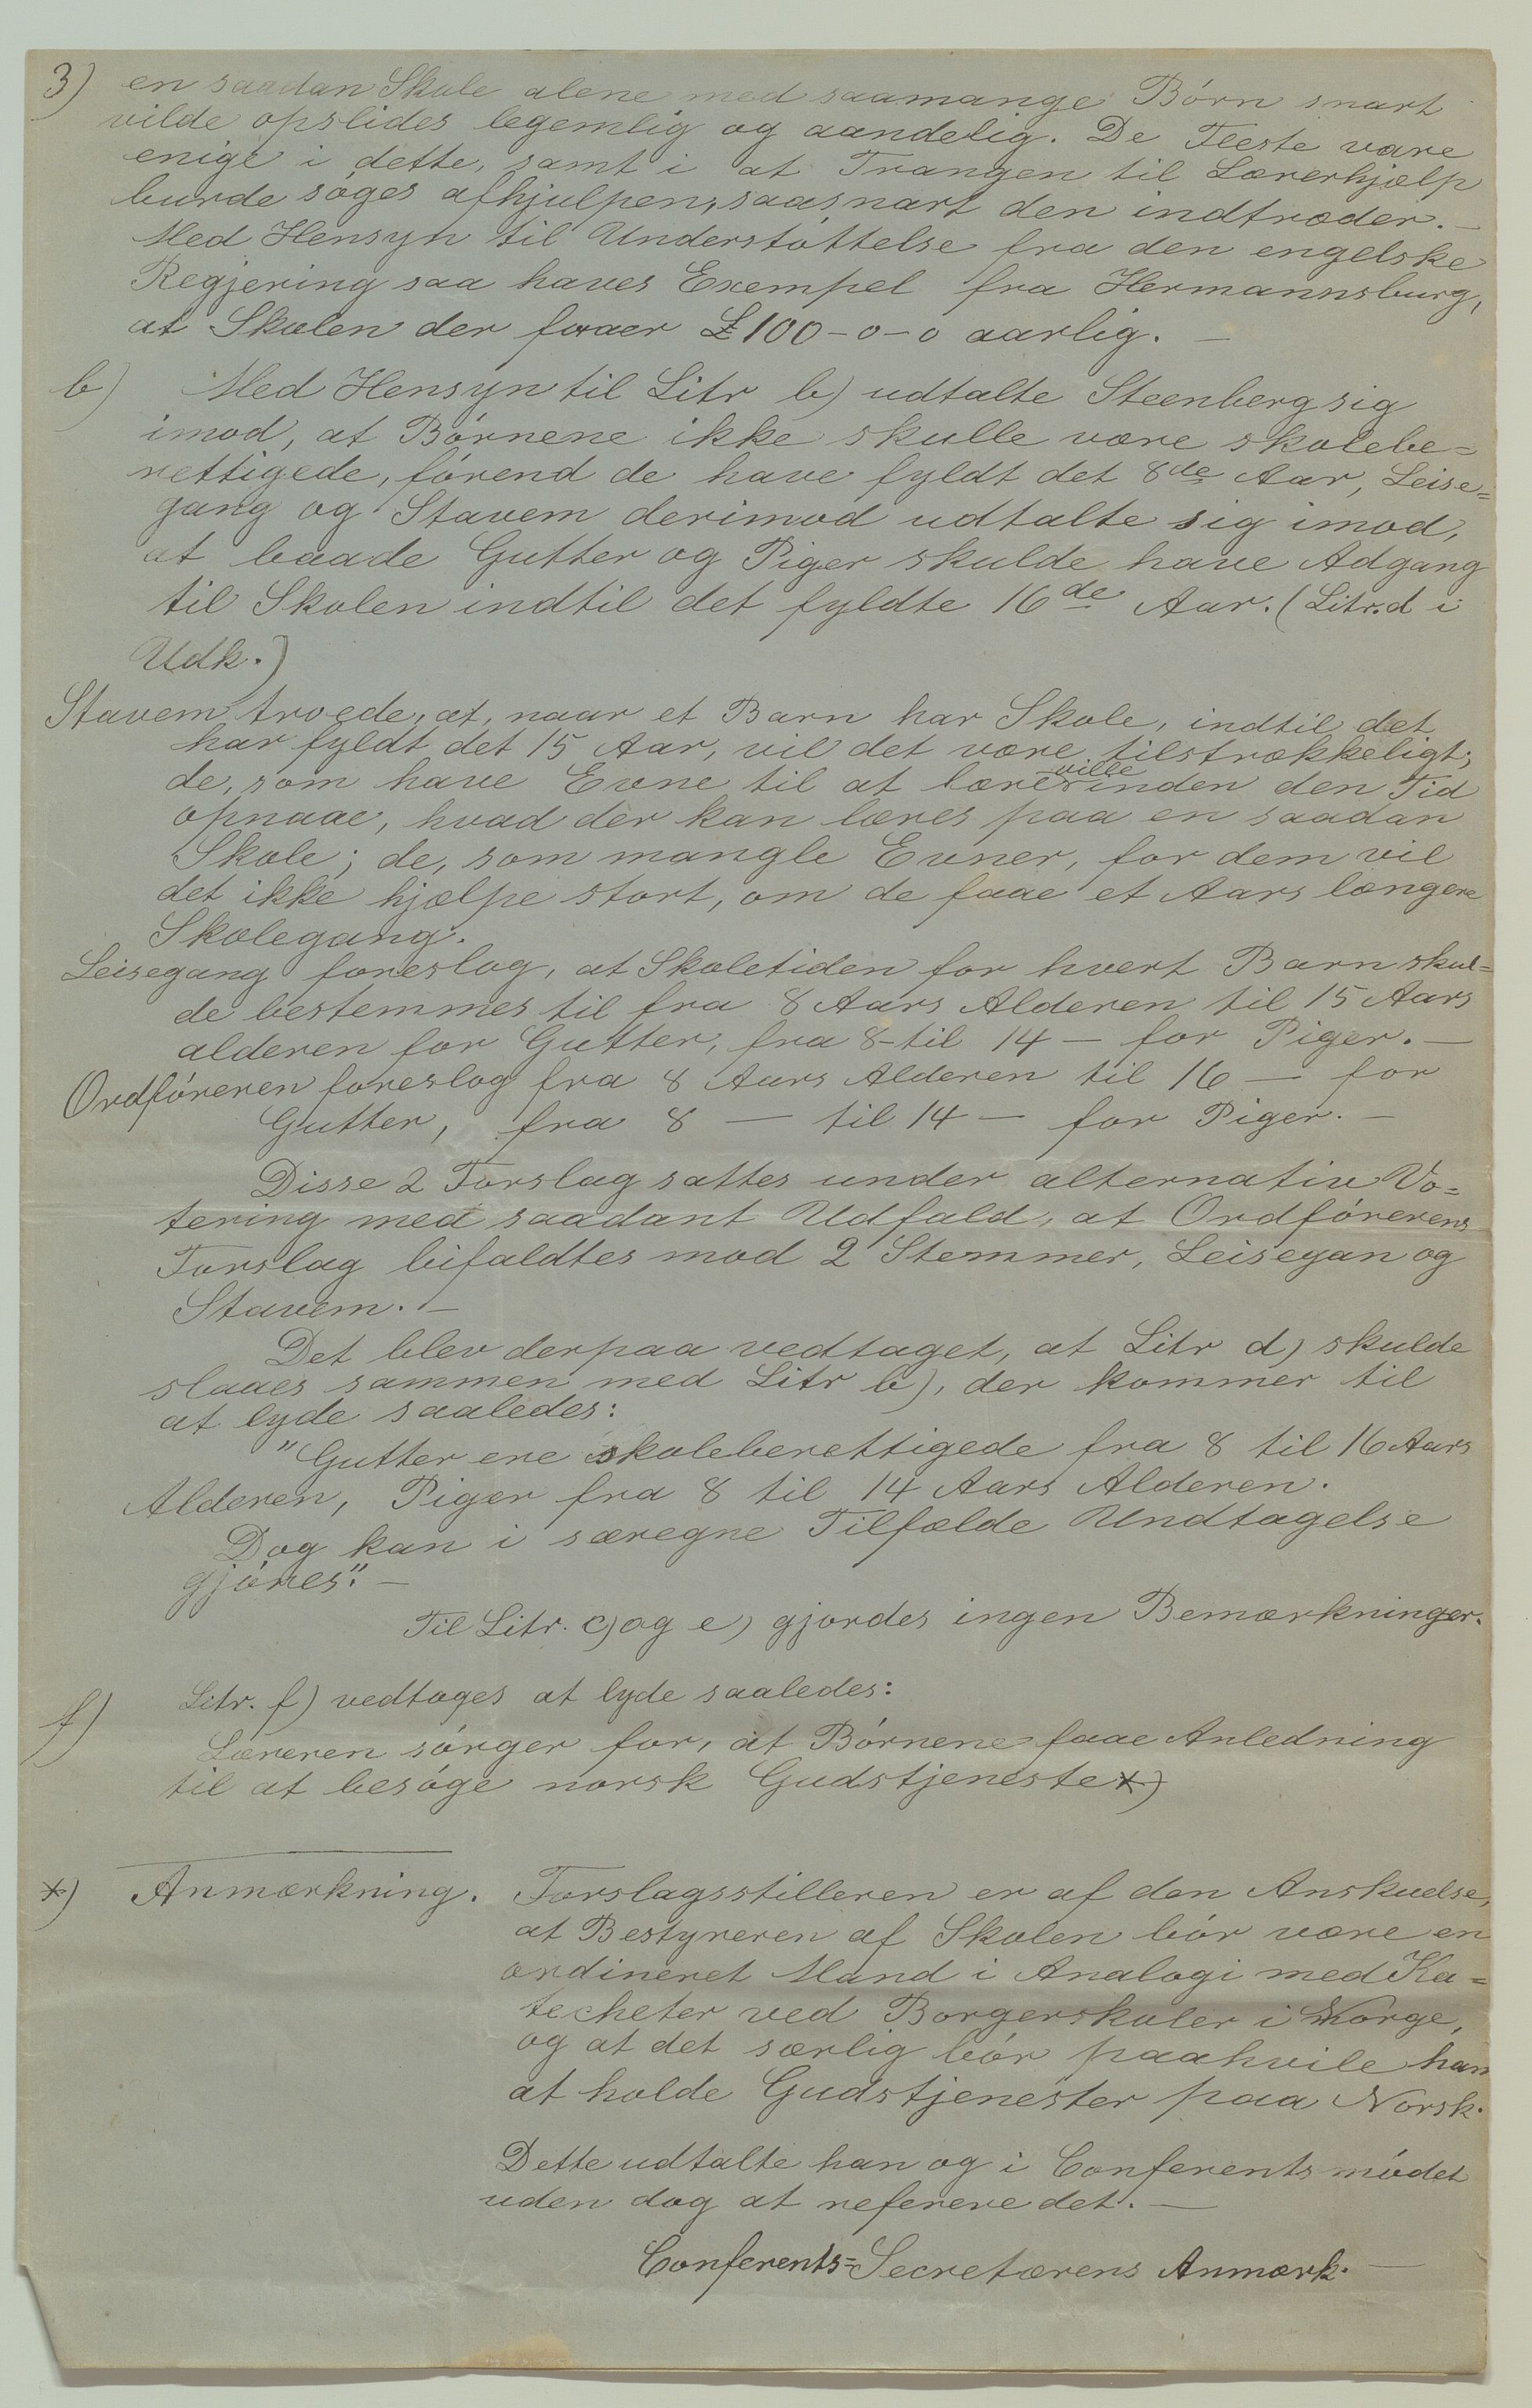 3) en saadan Skole alene med saamange Börn snart
vilde opslides legemlig og aandelig. De Fleste vare
enige i dette, samt i at Trangen til Lærerhjælp
burde söges afhjulpen, saasnart den indtræder. –
Med Hensyn til Understöttelse fra den engelske
Regjering saa haves Exempel fra Hermannsburg,
at Skolen der faaer £100-0-0 aarlig. –
b) Med Hensyn til Litr b) udtalte Steenberg sig
imod, at Börnene ikke skulle være skolebe=
rettigede, förend de have fyldt det 8de Aar, Leise=
gang og Stavem derimod udtalte sig imod,
at baade Gutter og Piger skulde have Adgang
til Skolen indtil det fyldte 16de Aar. (Litr. d i
Udk.)
Stavem troede, at, naar et Barn har Skole, indtil det
har fyldt det 15 Aar, vil det være tilstrækkeligt;
de, som have Evne til at lære ville inden den Tid
opnaae, hvad der kan læres paa en saadan
Skole; de, som mangle Evner, for dem vil
det ikke hjælpe stort, om de faae et Aars længere
Skolegang.
Leisegang foreslog, at Skoletiden for hvert Barn skul=
de bestemmes til fra 8 Aars Alderen til 15 Aars
alderen for Gutter, fra 8 - til 14 — for Piger. –
Ordföreren foreslog fra 8 Aars Alderen til 16 — for
Gutter, fra 8 — til 14 — for Piger. –
Disse 2 Forslag sattes under alternativ Vo=
tering med saadant Udfald, at Ordförerens
Forslag bifaldtes mod 2 Stemmer, Leisegan og
Stavem. –
Det blev derpaa vedtaget, at Litr d) skulde
slaaes sammen med Litr b), der kommer til
at lyde saaledes:
"Gutter ere skoleberettigede fra 8 til 16 Aars
Alderen, Piger fra 8 til 14 Aars Alderen.
Dog kan i særegne Tilfælde Undtagelse
gjöres". –
Til Litr. c) og e) gjordes ingen Bemærkninger.
f) Litr. f) vedtages at lyde saaledes:
Læreren sörger for, at Börnene faae Anledning
til at besöge norsk Gudstjeneste *)
*) Anmærkning. Forslagsstilleren er af den Anskuelse,
at Bestyreren af Skolen bör være en
ordineret Mand i Analogi med Ka=
techeter ved Borgerskoler i Norge,
og at det særlig bör paahvile ham
at holde Gudstjenester paa Norsk.
Dette udtalte han og i Conferentsmödet
uden dog at referere det. —
Conferents=Secretærens Anmærk. —